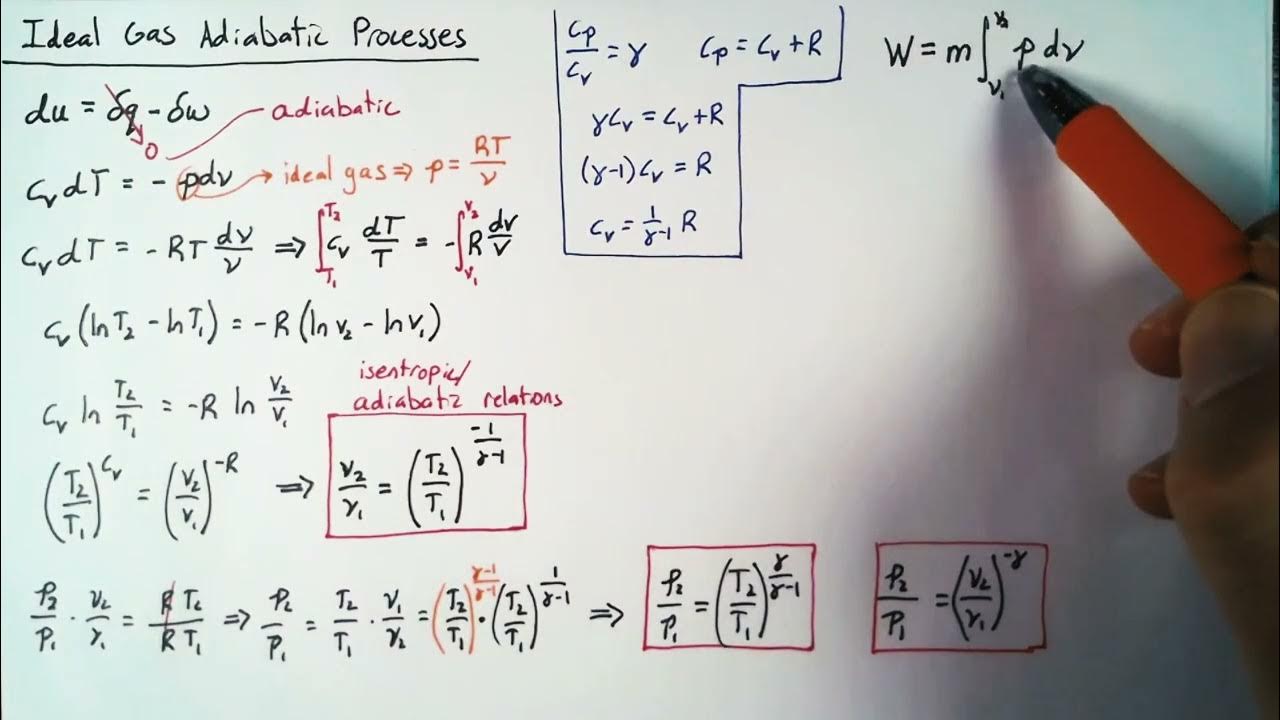 Ideal Gas Adiabatic Processes
du = δq - δw → adiabatic
0
c_v dT = - p dν → ideal gas ⇒ p = RT/ν
c_v dT = - RT dν/ν ⇒ ∫_{T_1}^{T_2} c_v dT/T = - ∫_{ν_1}^{ν_2} R dν/ν
c_v (ln T_2 - ln T_1) = -R (ln ν_2 - ln ν_1)
c_v ln T_2/T_1 = -R ln ν_2/ν_1
(T_2/T_1)^{c_v} = (ν_2/ν_1)^{-R} ⇒
isentropic/
adiabatic relations
ν_2/ν_1 = (T_2/T_1)^{-1/(γ-1)}
p_2/p_1 · ν_2/ν_1 = R T_2/R T_1 ⇒ p_2/p_1 = T_2/T_1 · ν_1/ν_2 = (T_2/T_1)^{(γ-1)/(γ-1)} · (T_2/T_1)^{1/(γ-1)} ⇒ p_2/p_1 = (T_2/T_1)^{γ/(γ-1)}
p_2/p_1 = (ν_2/ν_1)^{-γ}
c_p/c_v = γ c_p = c_v + R
γc_v = c_v + R
(γ-1)c_v = R
c_v = 1/(γ-1) R
W = m ∫_{ν_1}^{ν_2} p dν